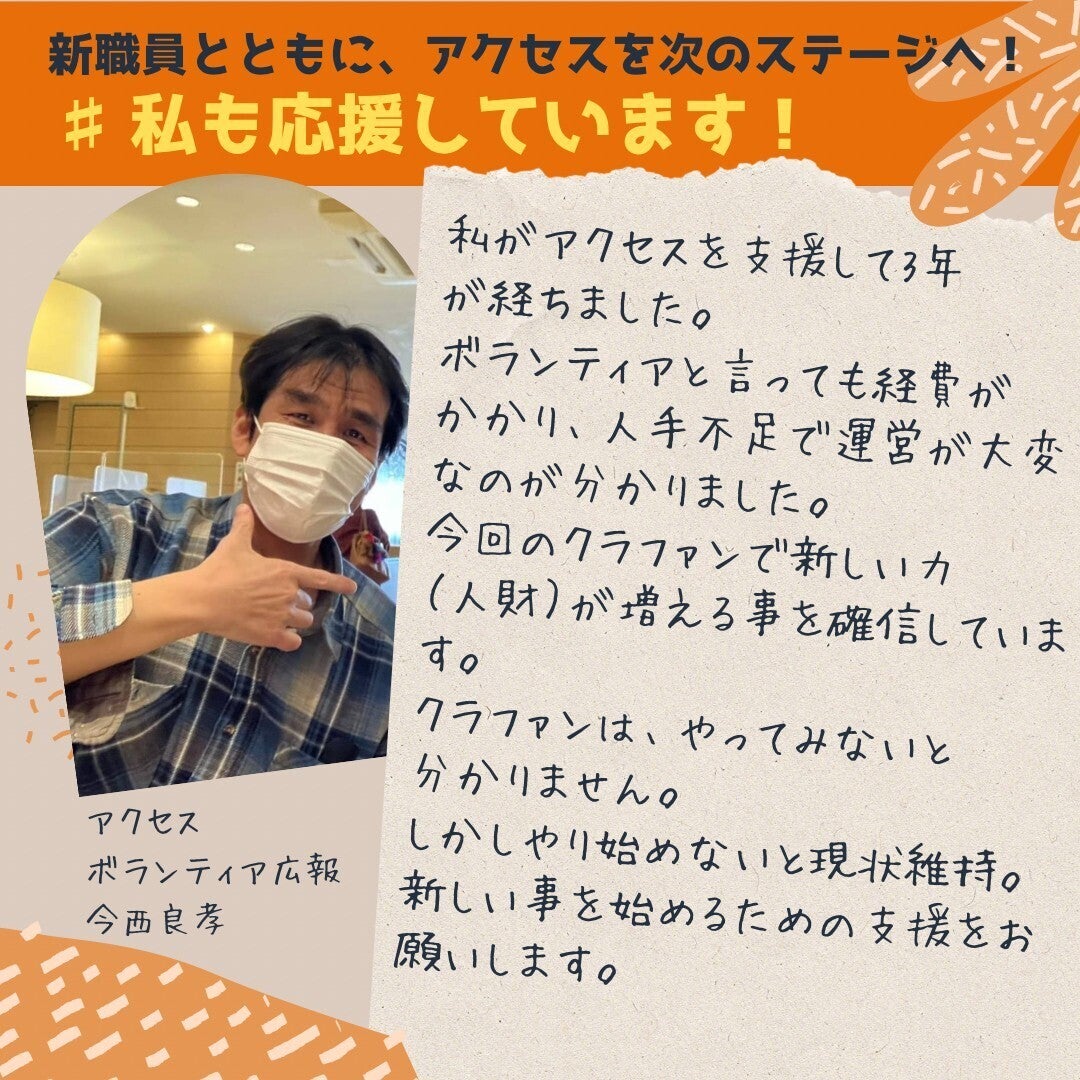 新職員とともに、アクセスを次のステージへ！
♯私も応援しています！
私がアクセスを支援して3年
が経ちました。
ボランティアと言っても経費が
かかり、人手不足で運営が大変
なのが分かりました。
今回のクラファンで新しい力
(人財)が増える事を確信していま
す。
クラファンは、やってみないと
分かりません。
しかしやり始めないと現状維持。
新しい事を始めるための支援をお
願いします。
アクセス
ボランティア広報
今西良孝